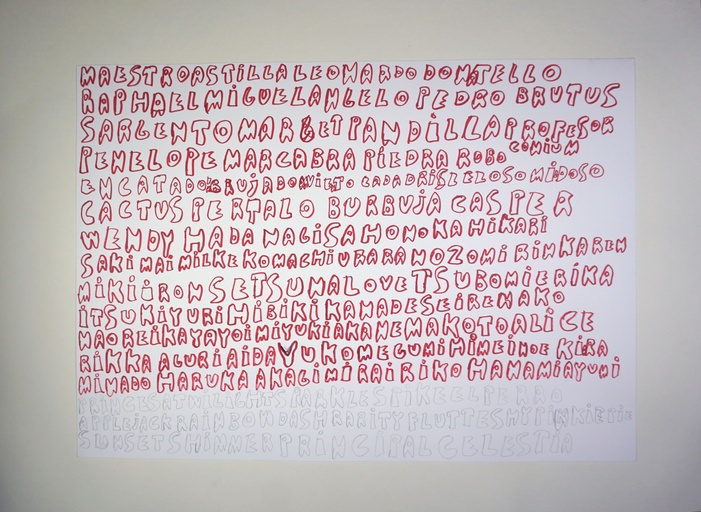 MAESTROASTILLALEONARDO DONATELLO
RAPHAELMiGUELANGELO PEDRO BRUTUS
SARGENTOMARGETPANDiLLAPROFESOR
PENELOPEMARCABRA PiEDRA ROBO COMiUM
ENCATADO BRUJADO
CACTUS PERTALO BURBUJA CASPER
WENDY HADA NALiSA HONOKA HiKARi
SAKi MAi MiLKE KOMACHi URARA NOZOMi RiN KAREN
MiKi iRON SETSUNA LOVE TSUBOMi ERiKA
iTSUKi YURi HiBiKi KANADE SEiREN AKO
NAO REiKA YAYOi MiYUKi AKANE MAKOTO ALiCE
RiKKA AGURi AiDA YUKO MEGUMi HiMEiNOE KiRA
MiNADO HARUKA AKAGi MiRAi RiKO HANAMiAYUMi
PRiNCESATWiLiGHTSPARKLESPiKEELPERRO
APPLEJACKRAiNBOWDASHRARiTYFLUTTESHYPiNKiEPiE
SUNSETSHiMMERPRiNCiPALCELESTiA